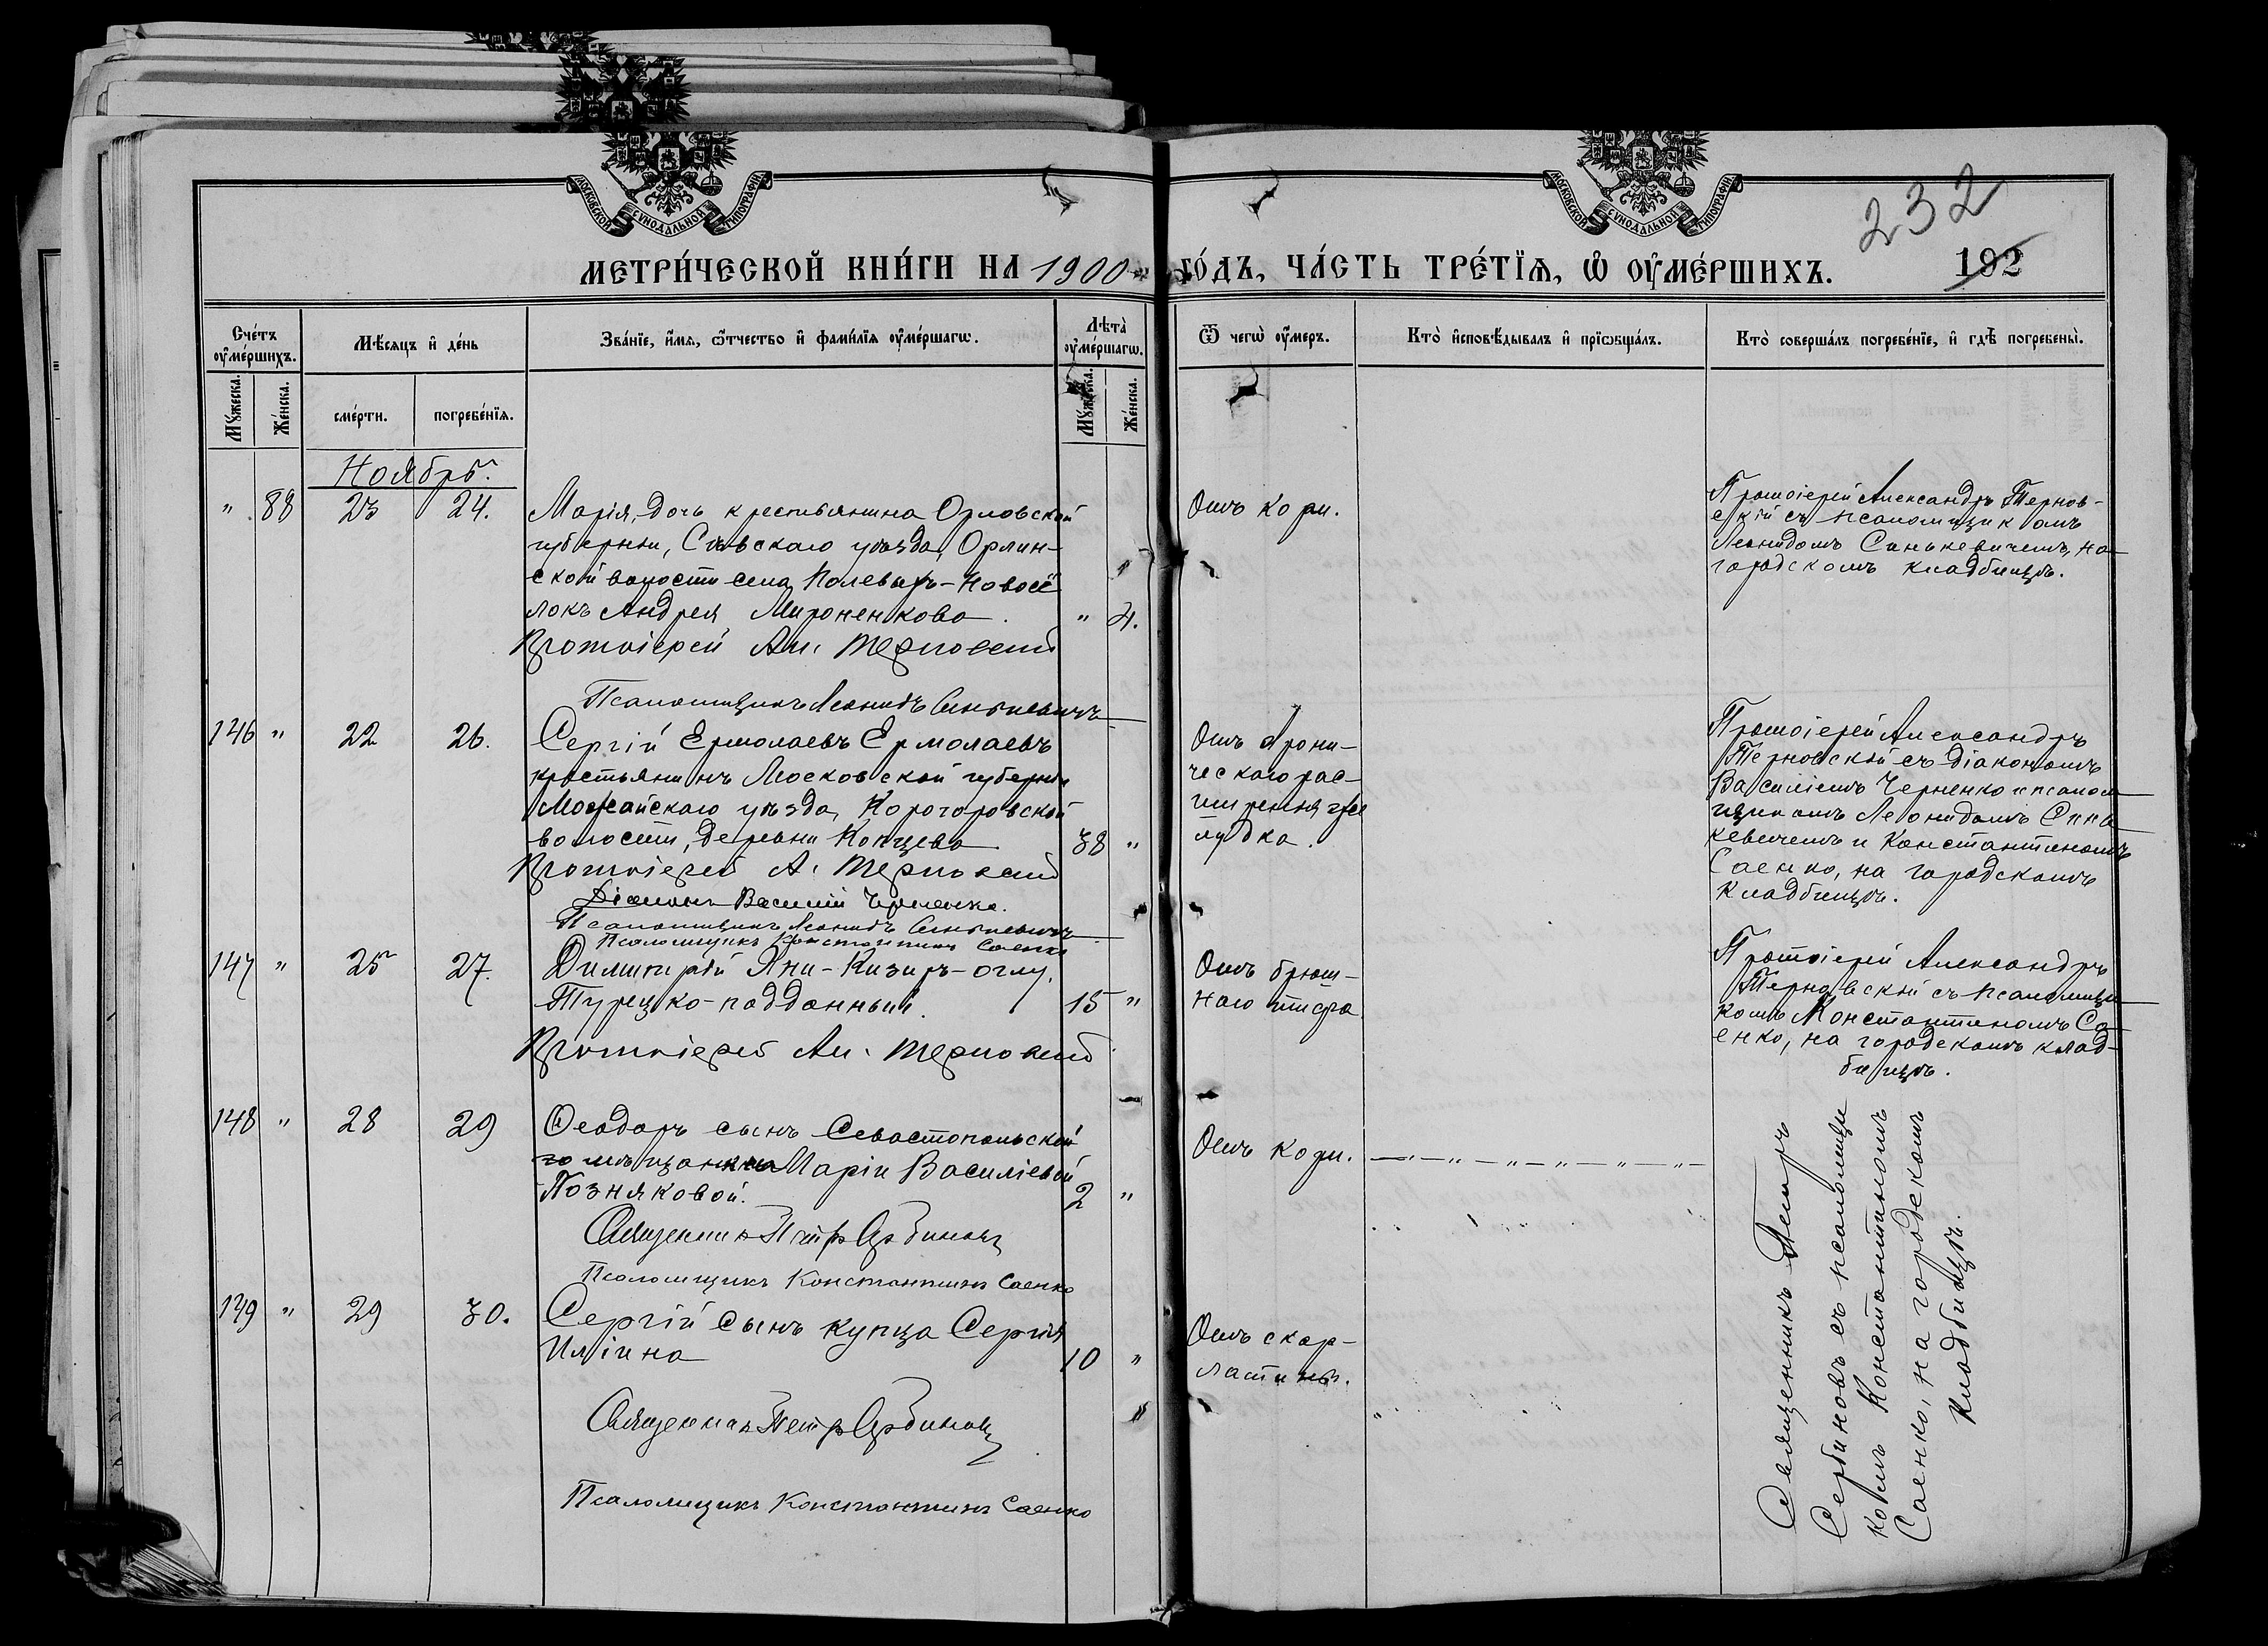 МОСКОВСКОЙ СѴНОДАЛЬНОЙ ТИПОГРАФІИ
МОСКОВСКОЙ СѴНОДАЛЬНОЙ ТИПОГРАФІИ
232
МЕТРИ́ЧЕСКОЙ КНИ́ГИ НА 1900 ГО́ДЪ, ЧА́СТЬ ТРЕ́ТЇѦ, Ѡ҆ ОУ҆МЕ́РШИХЪ. 192
Сче́тъ оу҆ме́ршихъ.
Мꙋ́жеска. Же́нска.
Мѣ́сѧцъ и҆ де́нь
сме́рти. погребе́нїѧ.
Зва́нїе, и҆́мѧ, ѻ҆́тчество и҆ фами́лїѧ оу҆ме́ршагѡ.
Лѣта̀ оу҆ме́ршагѡ.
Мꙋ́жеска. Же́нска.
Ѿ чегѡ̀ оу҆́меръ.
Кто̀ и҆сповѣ́дывалъ и҆ прїѡбща́лъ.
Кто̀ соверша́лъ погребе́нїе, и҆ гдѣ̀ погребены̀.
Ноябрь.
" 88 23 24.
Марія, дочь крестьянина Орловской
губерніи, Сѣвскаго уѣзда, Орлин-
ской волости села Полевыхъ-Новосё
локъ Андрея Мироненкова. " 4.
Протоіерей Ал. Терновскій
Псаломщикъ Леонидъ Синькевичъ
Отъ кори.
Протоіерей Александръ Тернов-
скій съ псаломщикомъ
Леонидомъ Синькевичемъ, на
городскомъ кладбищѣ.
146 " 22 26.
Сергій Ермолаевъ Ермолаевъ
крестьянинъ Московской губерніи
Можайскаго уѣзда,
волости, деревни Копцева 38 "
Протоіерей А. Терновскій
Діаконъ Василій Черненко.
Псаломщикъ Леонидъ Синькевичъ
Псаломщикъ Константинъ Саенко
Отъ хрони-
ческаго рас-
ширенія же
лудка.
Протоіерей Александръ
Терновскій съ діакономъ
Василіемъ Черненко и псалом
щикомъ Леонидомъ Синь
кевичемъ и Константиномъ
Саенко, на городскомъ
кладбищѣ.
147 " 25 27.
Димитрій Яни-Кизиръ-оглу,
Турецко-подданный. 15 "
Протоіерей Ал. Терновскій
Отъ брюш-
наго тифа
Протоіерей Александръ
Терновскій съ псаломщи
комъ Константиномъ Са-
енко, на городскомъ клад-
бищѣ.
148 " 28 29
Ѳеодоръ сынъ Севастопольской
мѣщанки Маріи Василіевой
Позняковой. 2 "
Священникъ Петръ Сербиновъ
Псаломщикъ Константинъ Саенко
Отъ кори. — " — " — " — " — " —
149 " 29 30.
Сергій сынъ купца Сергія
Иліина 10 "
Священникъ Петръ Сербиновъ
Псаломщикъ Константинъ Саенко
Отъ скар-
латины.
Священникъ Петръ
Сербиновъ съ псаломщи
комъ Константиномъ
Саенко, на городскомъ
кладбищѣ.